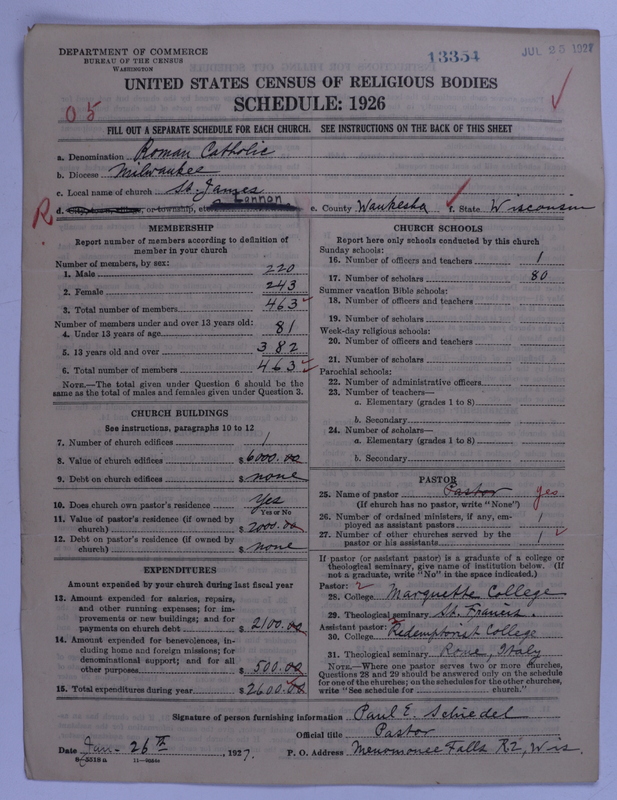 DEPARTMENT OF COMMERCE
BUREAU OF THE CENSUS
WASHINGTON
13354
JUL 25 1927
UNITED STATES CENSUS OF RELIGIOUS BODIES
SCHEDULE: 1926
05
FILL OUT A SEPARATE SCHEDULE FOR EACH CHURCH. SEE INSTRUCTIONS ON THE BACK OF THIS SHEET
a. Denomination Roman Catholic
b. Diocese Milwaukee
c. Local name of church St. James
R d. City, town, village, or township, etc. Lannon e. County Waukesha f. State Wisconsin
MEMBERSHIP
Report number of members according to definition of
member in your church
Number of members, by sex:
1. Male 220
2. Female 243
3. Total number of members 463
Number of members under and over 13 years old:
4. Under 13 years of age 81
5. 13 years old and over 382
6. Total number of members 463
NOTE.—The total given under Question 6 should be the
same as the total of males and females given under Question 3.
CHURCH BUILDINGS
See instructions, paragraphs 10 to 12
7. Number of church edifices 1
8. Value of church edifices $6000.00
9. Debt on church edifices $ none
10. Does church own pastor's residence Yes
Yes or No
11. Value of pastor's residence (if owned by
church) $2000.00
12. Debt on pastor's residence (if owned by
church) $ none
EXPENDITURES
Amount expended by your church during last fiscal year
13. Amount expended for salaries, repairs,
and other running expenses; for im-
provements or new buildings; and for
payments on church debt $2100.00
14. Amount expended for benevolences, in-
cluding home and foreign missions; for
denominational support; and for all
other purposes $500.00
15. Total expenditures during year $2600.00
CHURCH SCHOOLS
Report here only schools conducted by this church
Sunday schools:
16. Number of officers and teachers 1
17. Number of scholars 80
Summer vacation Bible schools:
18. Number of officers and teachers
19. Number of scholars
Week-day religious schools:
20. Number of officers and teachers
21. Number of scholars
Parochial schools:
22. Number of administrative officers
23. Number of teachers—
a. Elementary (grades 1 to 8)
b. Secondary
24. Number of scholars—
a. Elementary (grades 1 to 8)
b. Secondary
PASTOR
25. Name of pastor Pastor yes
(If church has no pastor, write "None")
26. Number of ordained ministers, if any, em-
ployed as assistant pastors 1
27. Number of other churches served by the
pastor or his assistants 1
If pastor (or assistant pastor) is a graduate of a college or
theological seminary, give name of institution below. (If
not a graduate, write "No" in the space indicated.)
Pastor: 2
28. College Marquette College
29. Theological seminary St. Francis.
Assistant pastor:
30. College Redemptorist College
31. Theological seminary Rome, Italy
NOTE.—Where one pastor serves two or more churches,
Questions 28 and 29 should be answered only on the schedule
for one of the churches; on the schedules for the other churches,
write "See schedule for church."
Signature of person furnishing information Paul E. Schiedel
Official title Pastor
Date Jan- 26th, 1927. P. O. Address Menomonee Falls R2, Wis.
8-5518a 11—9558a